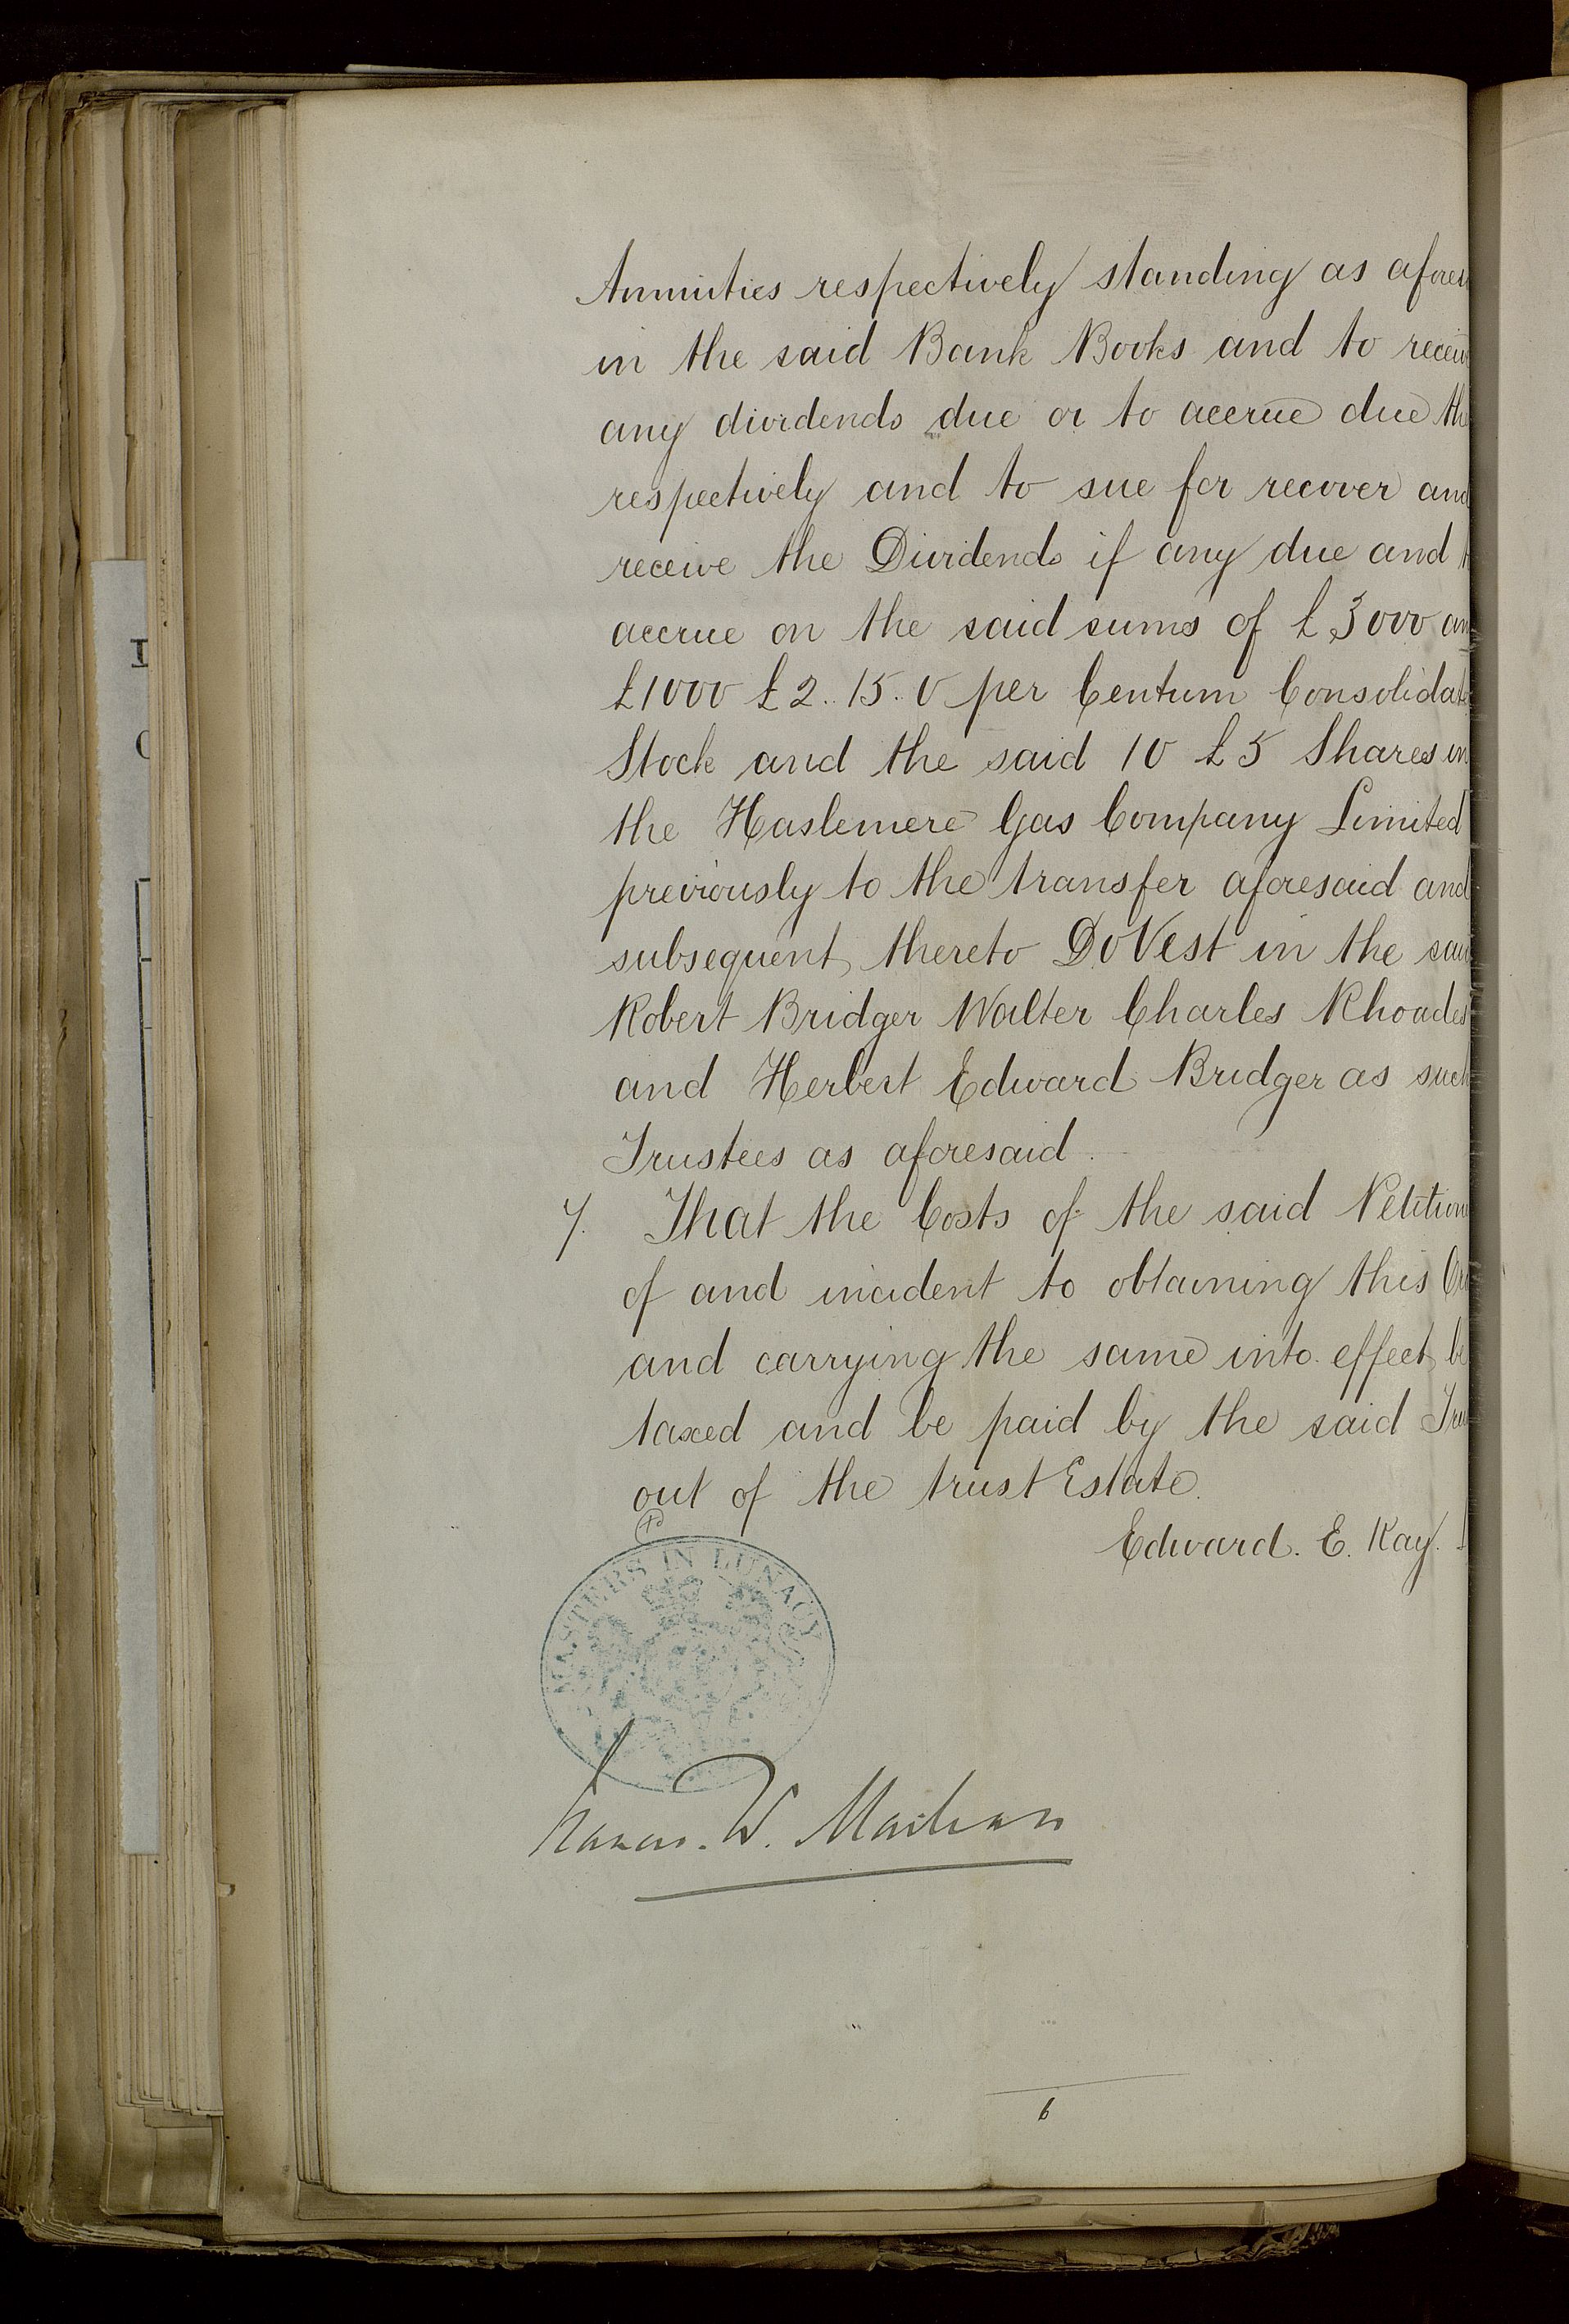 Annuities respectively standing as afores
in the said Bank Books and to receiv
any dividends due or to accrue due th
respectively and to sue for recover and
receive the Dividends if any due and t
accrue on the said sums of £3000 an
£1000 £2..15.0 per Centum Consolidate
Stock and the said 10 £5 Shares in
the Haslemere Gas Company Limited
previously to the transfer aforesaid and
subsequent thereto Do Vest in the said
Robert Bridger Walter Charles Rhoades
and Herbert Edward Bridger as such
Trustees as aforesaid.
7. That the Costs of the said Petition
of and incident to obtaining this Or
and carrying the same into effect be
taxed and be paid by the said Tru
out of the trust Estate.
Edward. E. Kay.
MASTERS IN LUNACY
W. Maclean
6